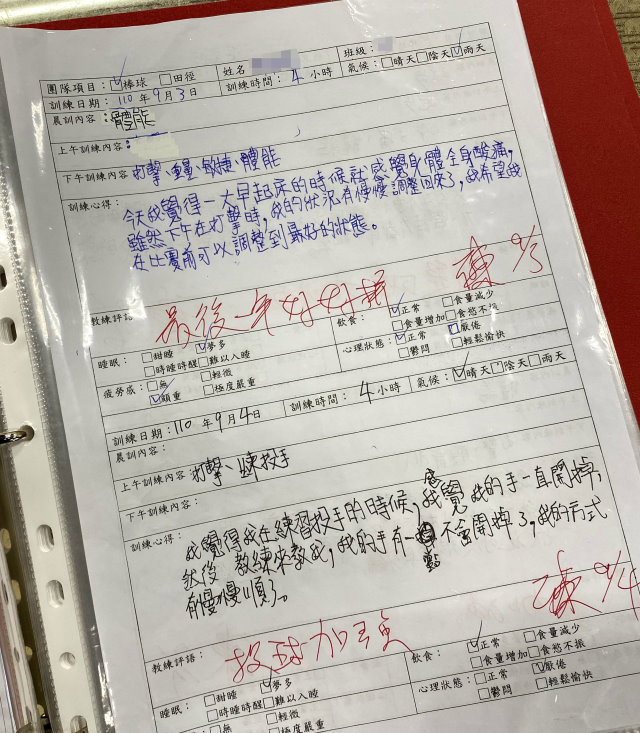 團隊項目：☑棒球 □田徑 姓名 班級：
訓練日期：110年9月3日 訓練時間：4小時 氣候：□晴天□陰天☑雨天
晨訓內容：體能
上午訓練內容：
下午訓練內容：打擊、重量、敏捷、體能
訓練心得：今天我覺得一大早起床的時候就感覺身體全身酸痛，
雖然下午在打擊時，我的狀況有慢慢調整回來了，我希望我
在比賽前可以調整到最好的狀態。
教練評語：最後一年好好拼 9/3
睡眠：□甜睡 ☑夢多 飲食：☑正常 □食量減少
□時睡時醒□難以入睡 □食量增加□食慾不振
疲勞感：□無 □輕微 心理狀態：☑正常 □厭倦
☑頗重 □極度嚴重 □鬱悶 □輕鬆愉快
訓練日期：110年9月4日 訓練時間：4小時 氣候：☑晴天□陰天□雨天
晨訓內容：
上午訓練內容：打擊、練投手
下午訓練內容：
訓練心得：我覺得我在練習投手的時候，感覺我的手一直開掉，
然後教練來教我，我的手有一點不會開掉了，我的方式
有慢慢順了。
教練評語：投球加強 9/4
睡眠：□甜睡 ☑夢多 飲食：☑正常 □食量減少
□時睡時醒□難以入睡 □食量增加□食慾不振
□無 □輕微 心理狀態：□正常 ☑厭倦
□極度嚴重 □鬱悶 □輕鬆愉快